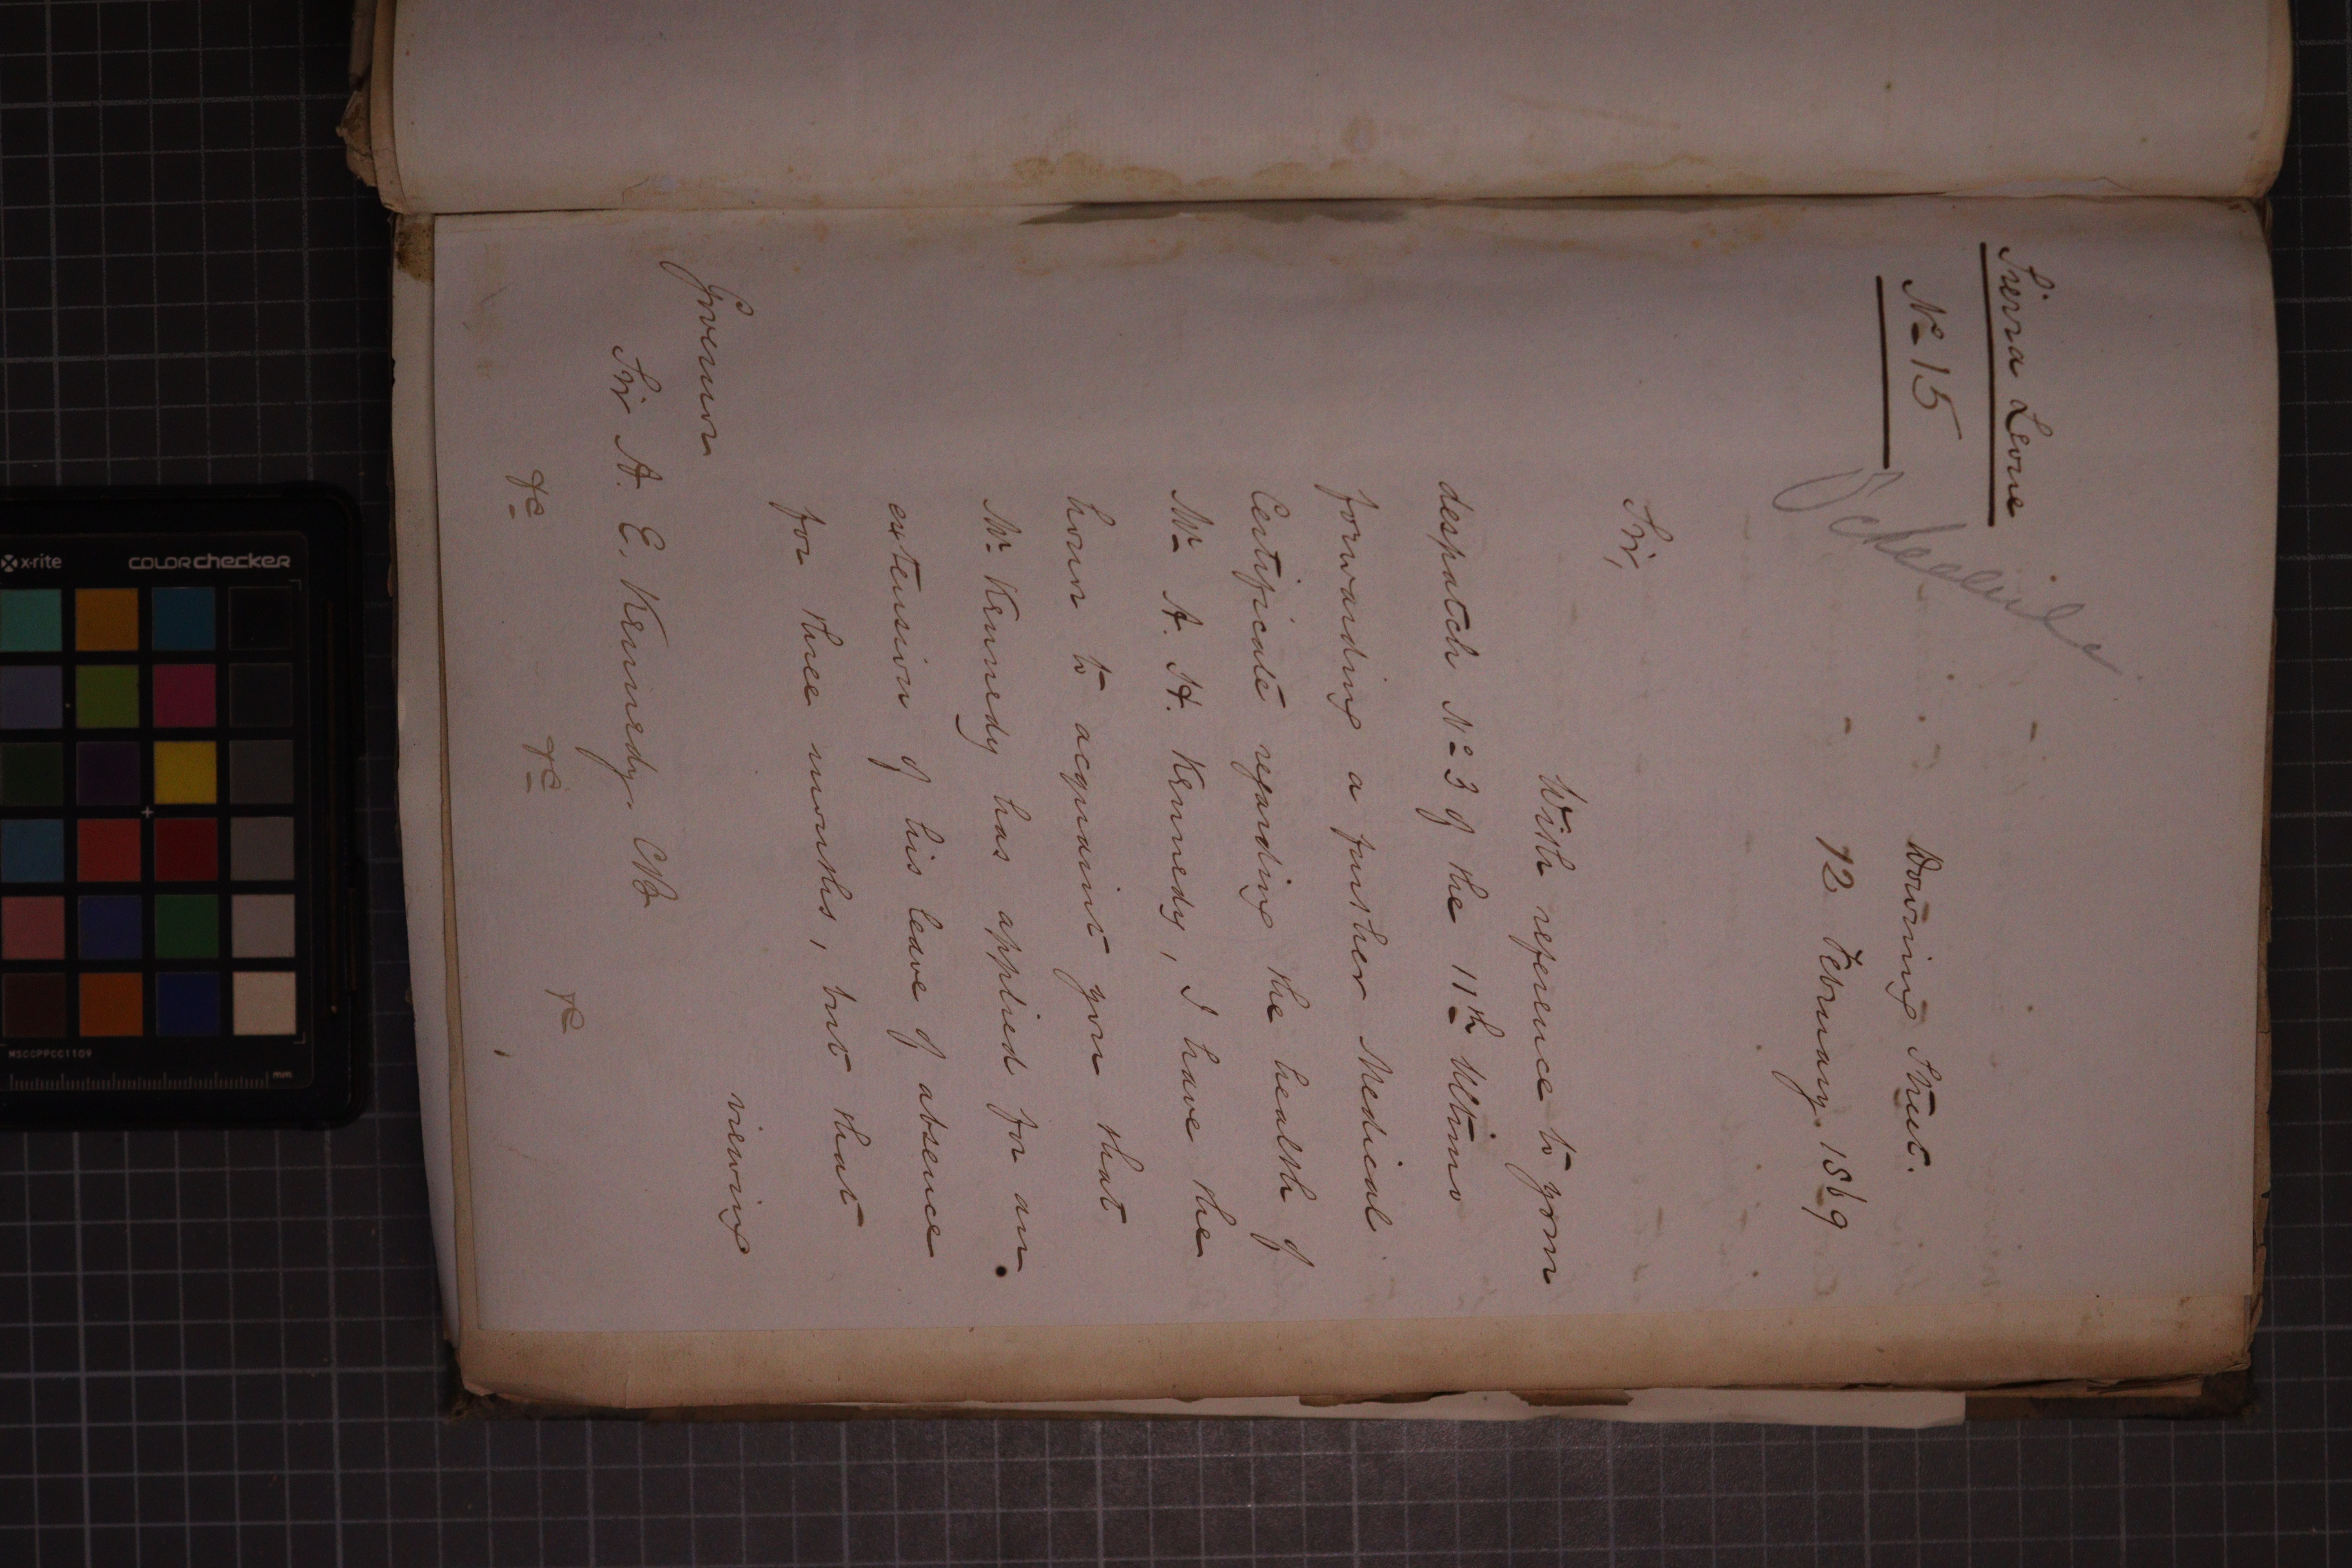 Sierra Leone
No 15
Downing Street.
12 February 1869
Sir,
With reference to your
despatch No 3 of the 11th Ultimo
forwarding a further Medical
Certificate regarding the health of
Mr A. H. Kennedy, I have the
honor to acquaint you that
Mr Kennedy has applied for an
extension of his leave of absence
for three months, but that
viewing
Governor
Sir A. E. Kennedy. CB
&c &c &c
x-rite colorchecker
MSCCPPCC1109
mm